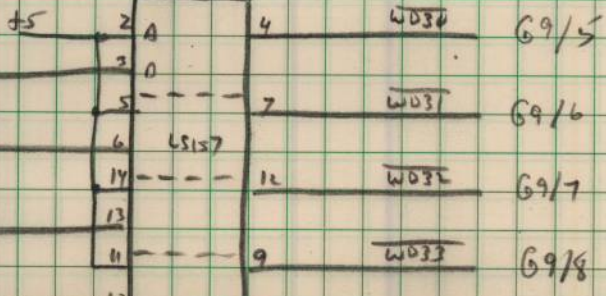 +5 2 A 4 WD30 G9/5
3 B
5 7 WD31 G9/6
6 LS157
14 12 WD32 G9/7
13
11 9 WD33 G9/8